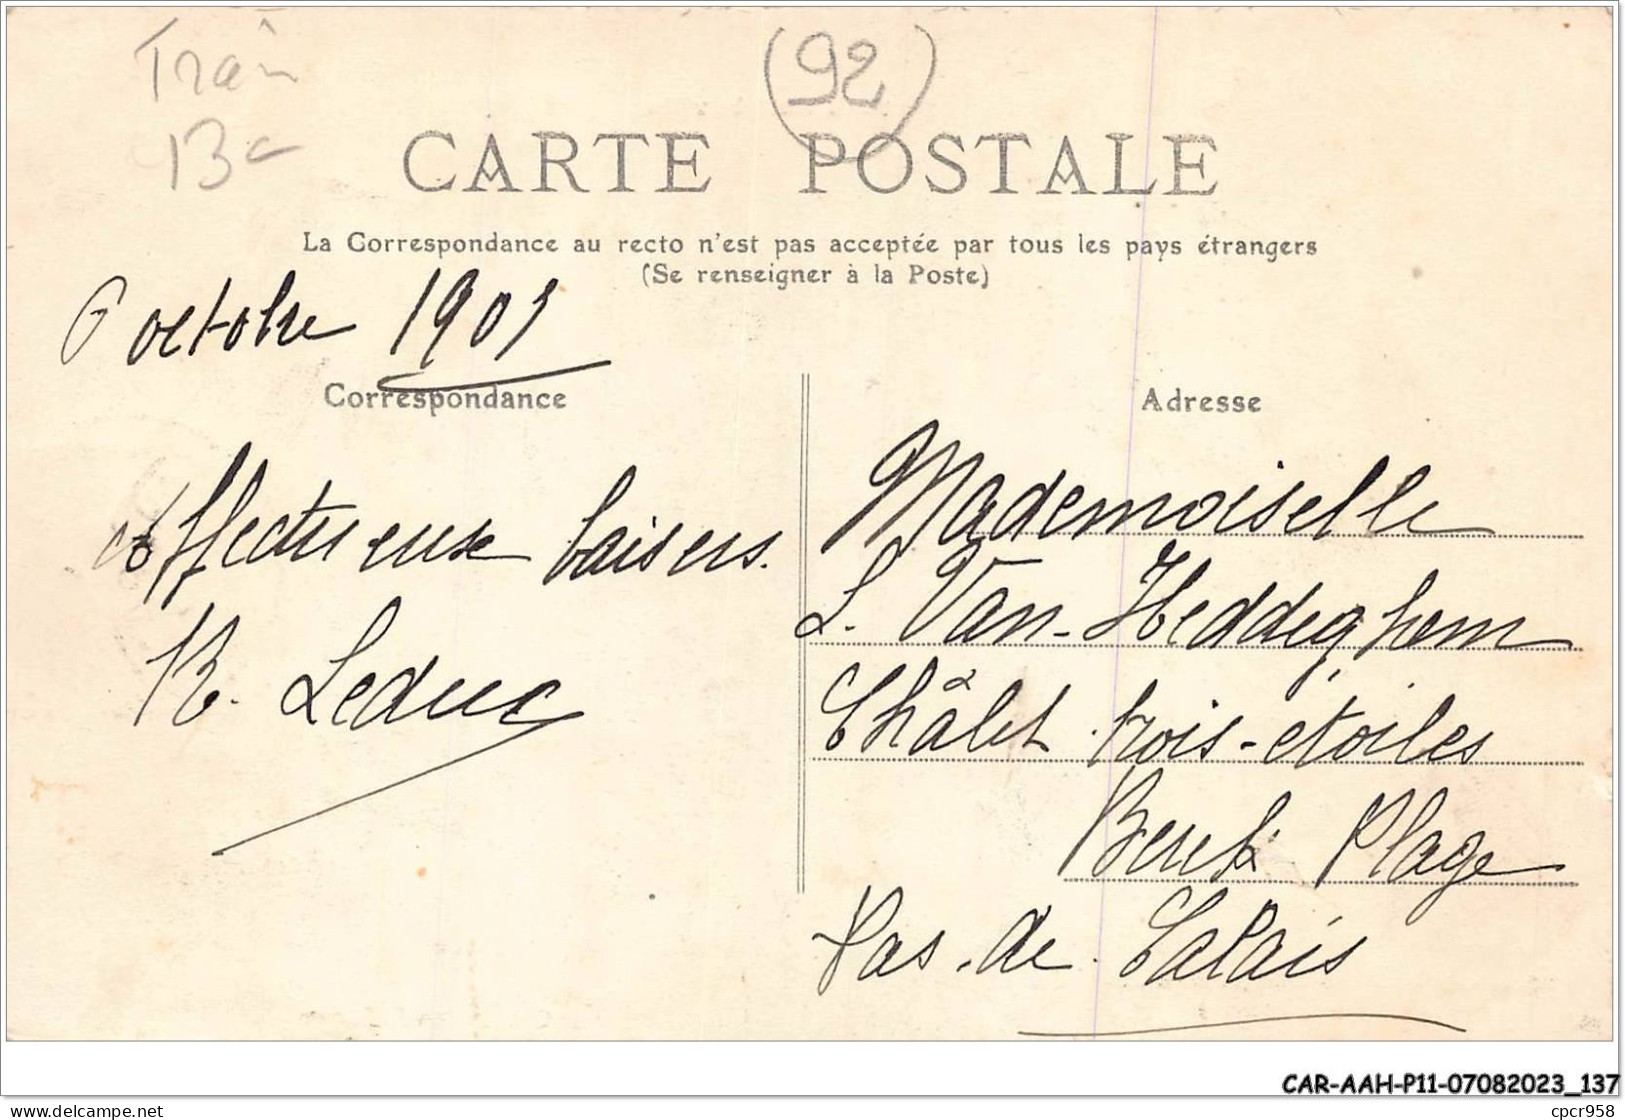 Train
13c
(92)
CARTE POSTALE
La Correspondance au recto n'est pas acceptée par tous les pays étrangers
(Se renseigner à la Poste)
6 octobre 1905
Correspondance
Affectueux baisers.
R. Leduc
Adresse
Mademoiselle
L. Van-Heddeghem
Châlet trois-étoiles
Berck Plage
Pas-de-Calais
CAR-AAH-P11-07082023_137
www.delcampe.net
cpcr958